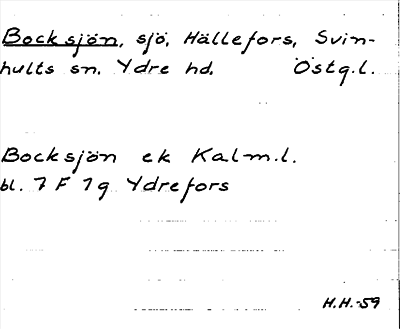 Bocksjön, sjö, Hällefors, Svin-
hults sn. Ydre hd. Östg.l.
Bocksjön ek Kalm.l.
bl. 7 F 7g Ydrefors
H.H.-59